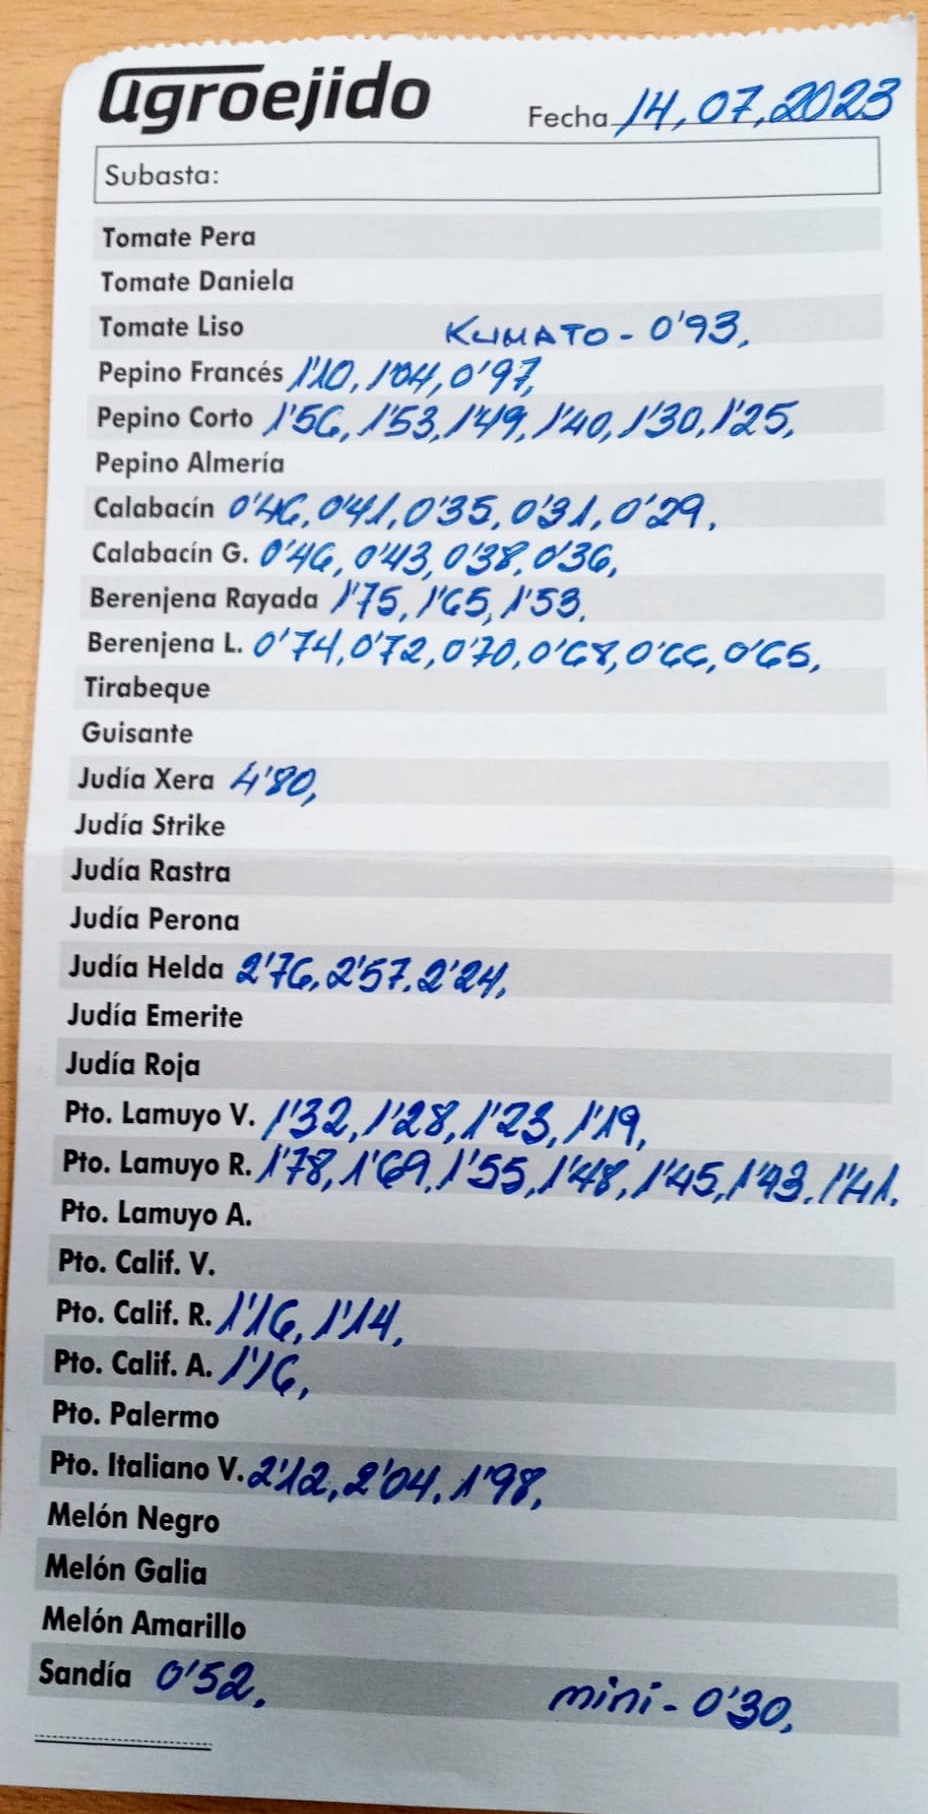 agroejido
Fecha 14,07,2023
Subasta:
Tomate Pera
Tomate Daniela
Tomate Liso KUMATO - 0'93,
Pepino Francés 1'10, 1'04, 0'97,
Pepino Corto 1'56, 1'53, 1'49, 1'40, 1'30, 1'25,
Pepino Almería
Calabacín 0'46, 0'41, 0'35, 0'31, 0'29,
Calabacín G. 0'46, 0'43, 0'38, 0'36,
Berenjena Rayada 1'75, 1'65, 1'53,
Berenjena L. 0'74, 0'72, 0'70, 0'68, 0'66, 0'65,
Tirabeque
Guisante
Judía Xera 4'80,
Judía Strike
Judía Rastra
Judía Perona
Judía Helda 2'76, 2'57, 2'24,
Judía Emerite
Judía Roja
Pto. Lamuyo V. 1'32, 1'28, 1'23, 1'19,
Pto. Lamuyo R. 1'78, 1'69, 1'55, 1'48, 1'45, 1'43, 1'41,
Pto. Lamuyo A.
Pto. Calif. V.
Pto. Calif. R. 1'16, 1'14,
Pto. Calif. A. 1'16,
Pto. Palermo
Pto. Italiano V. 2'12, 2'04, 1'98,
Melón Negro
Melón Galia
Melón Amarillo
Sandía 0'52, mini - 0'30,